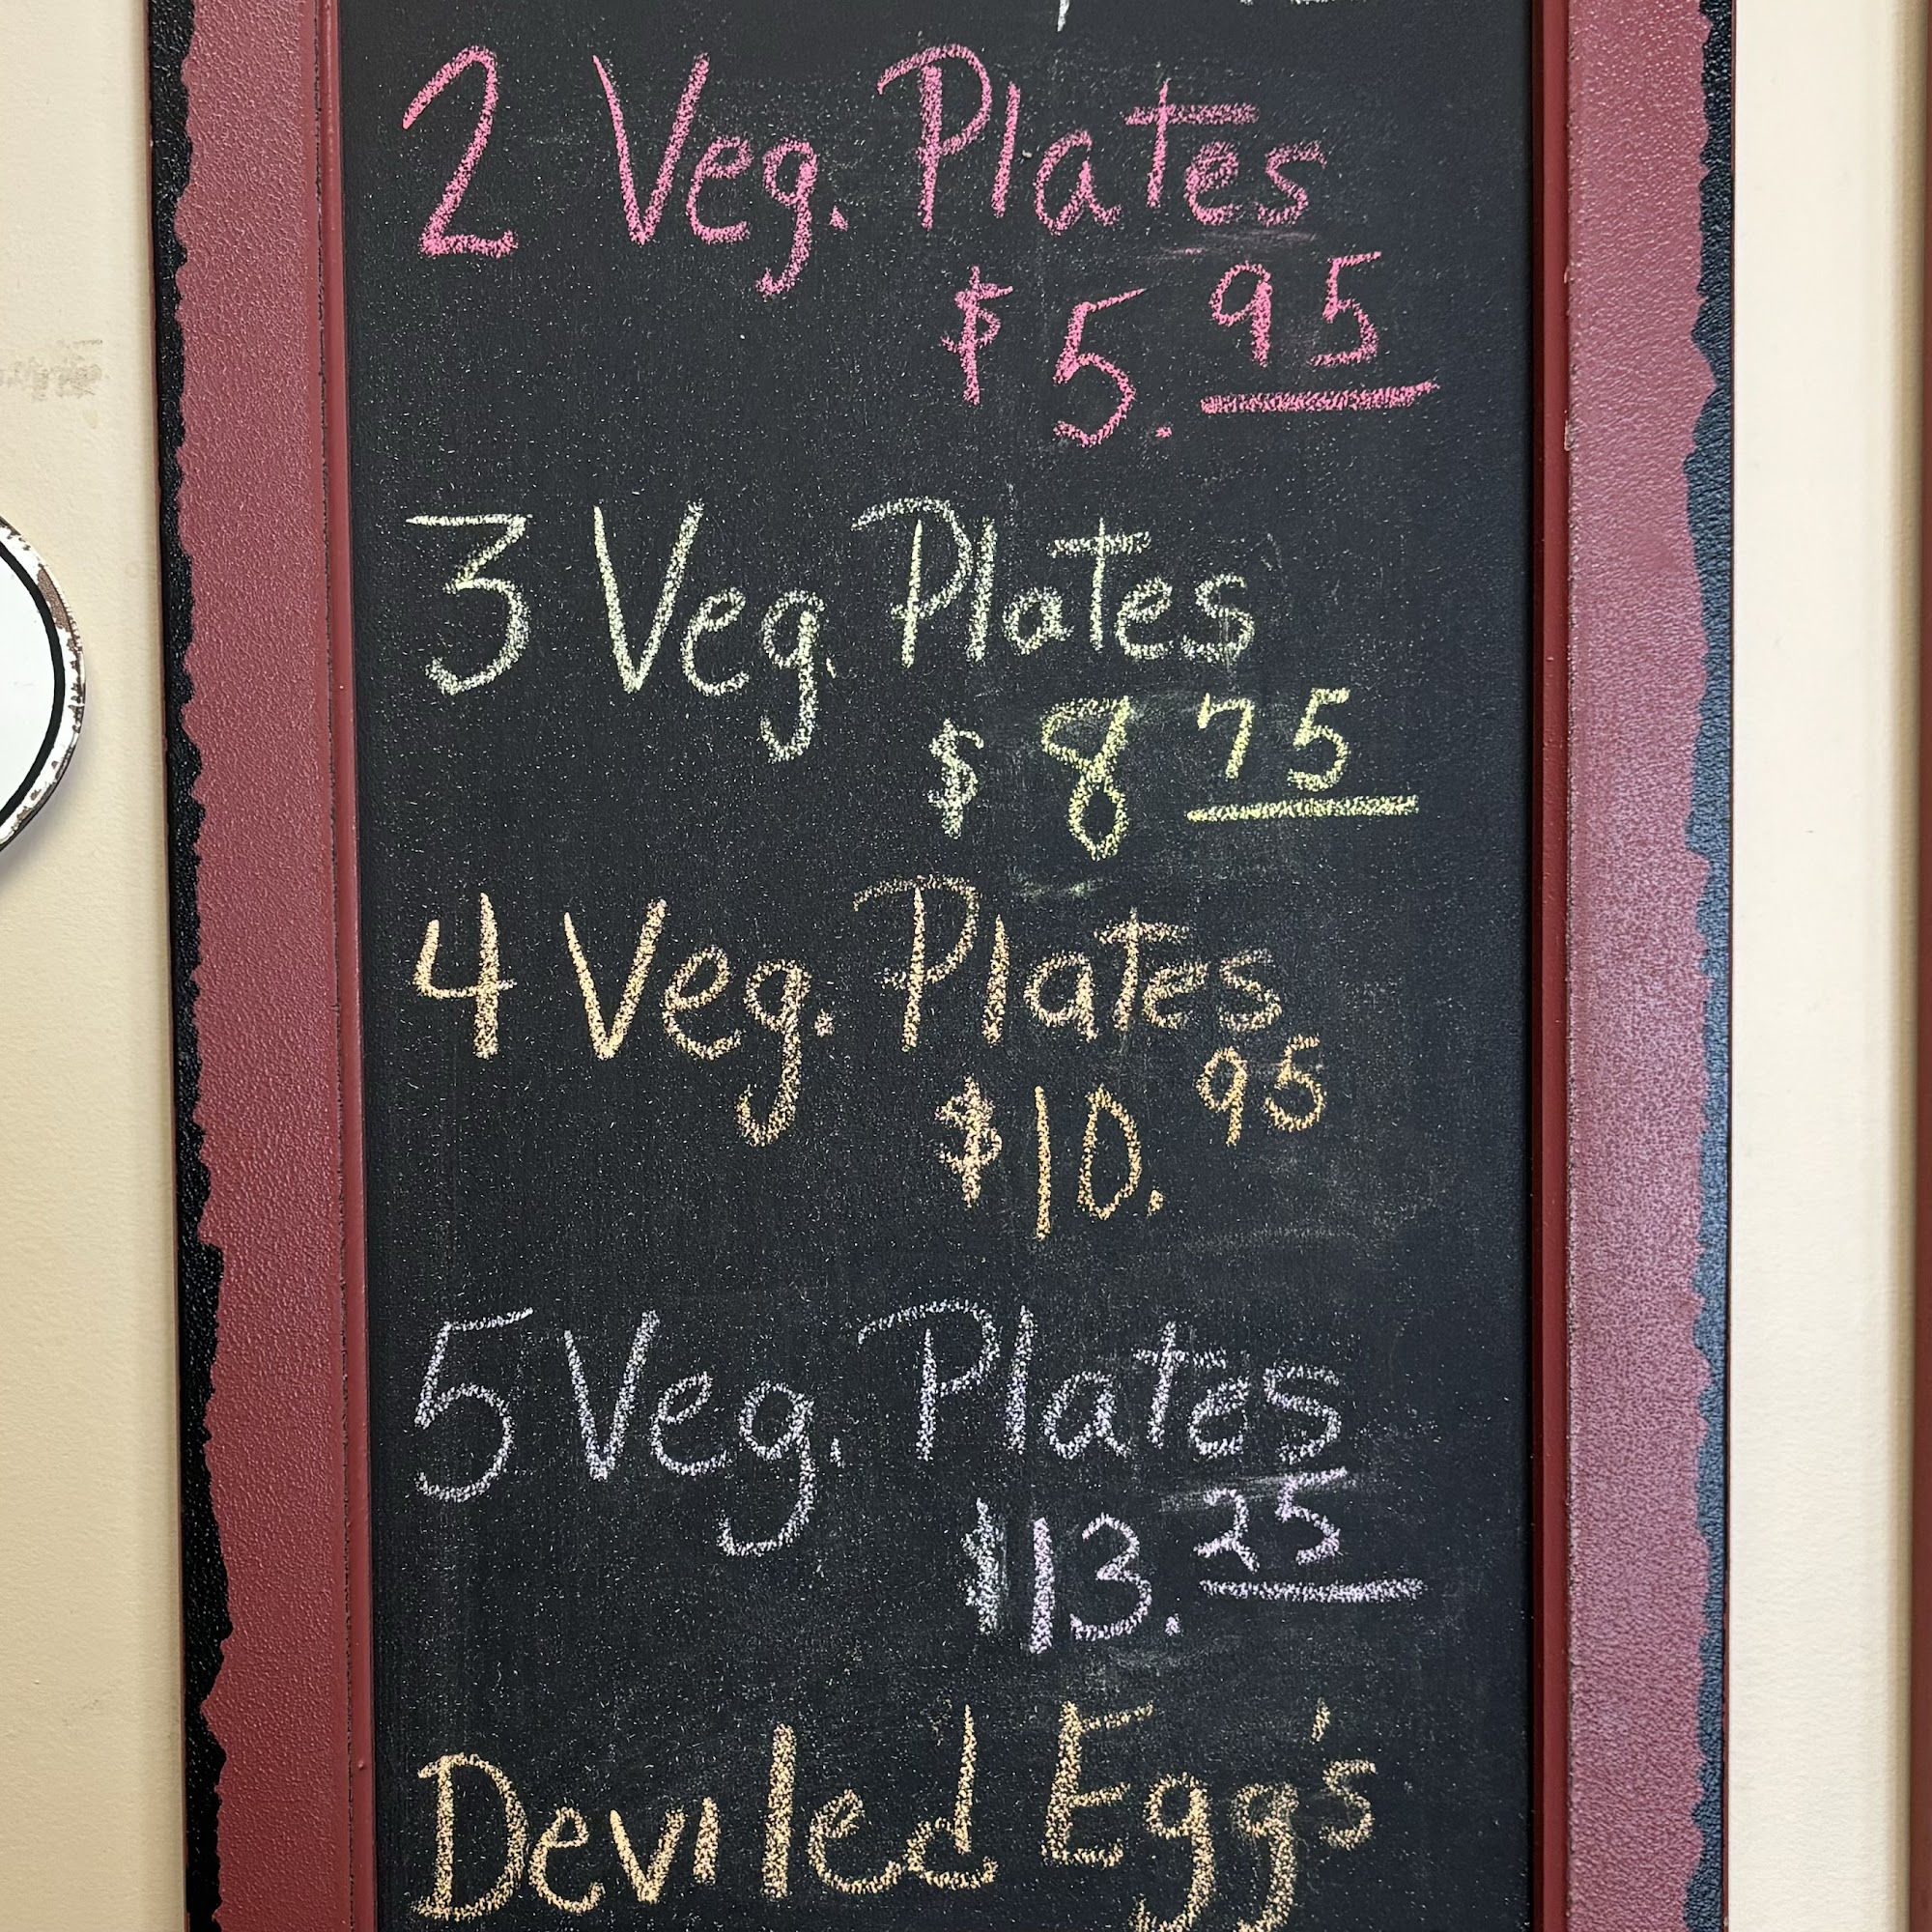 2 Veg. Plates
$5.95
3 Veg. Plates
$8 75
4 Veg. Plates
$10.95
5 Veg. Plates
$13.25
Deviled Egg's